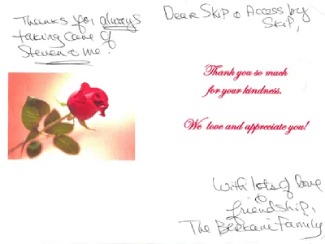 Thanks for always
taking care of
Steven & me!
Dear Skip & Access by
Skip,
Thank you so much
for your kindness.
We love and appreciate you!
With lots of love
&
friendship,
The Family